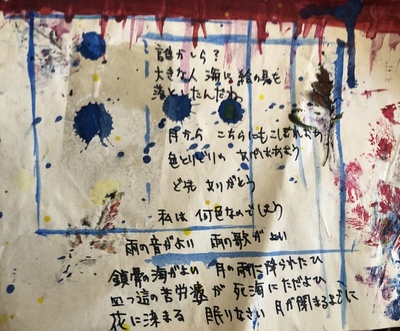 誰かしら?
大きな人 海に 絵の具を
落としたんだわ
月から こちらにもこぼれ
色とりどりの
どうも ありがとう
私は 何色なのでしょう
雨の音がよい 雨の歌がよい
鎖骨の海がよい 月の雨に降られたひ
四つ這の苦労痕が 死海にただよひ
花に染まる 眠りなさい 月が閉まるまでに